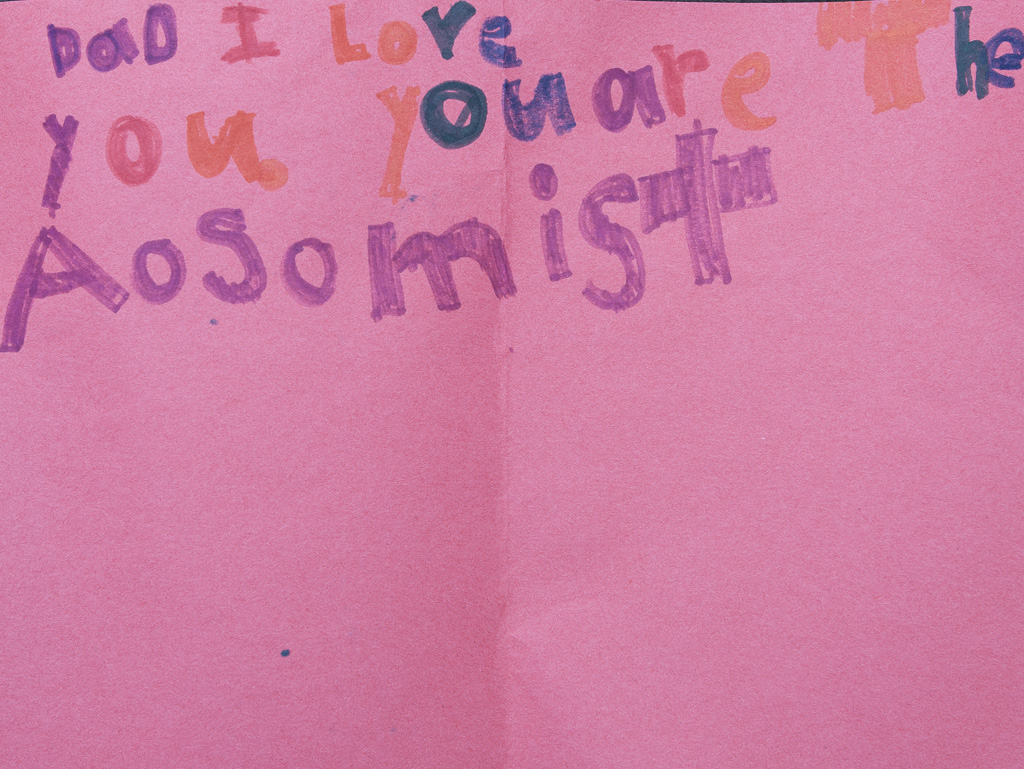 DaD I Love
you. you are The
Aosomist